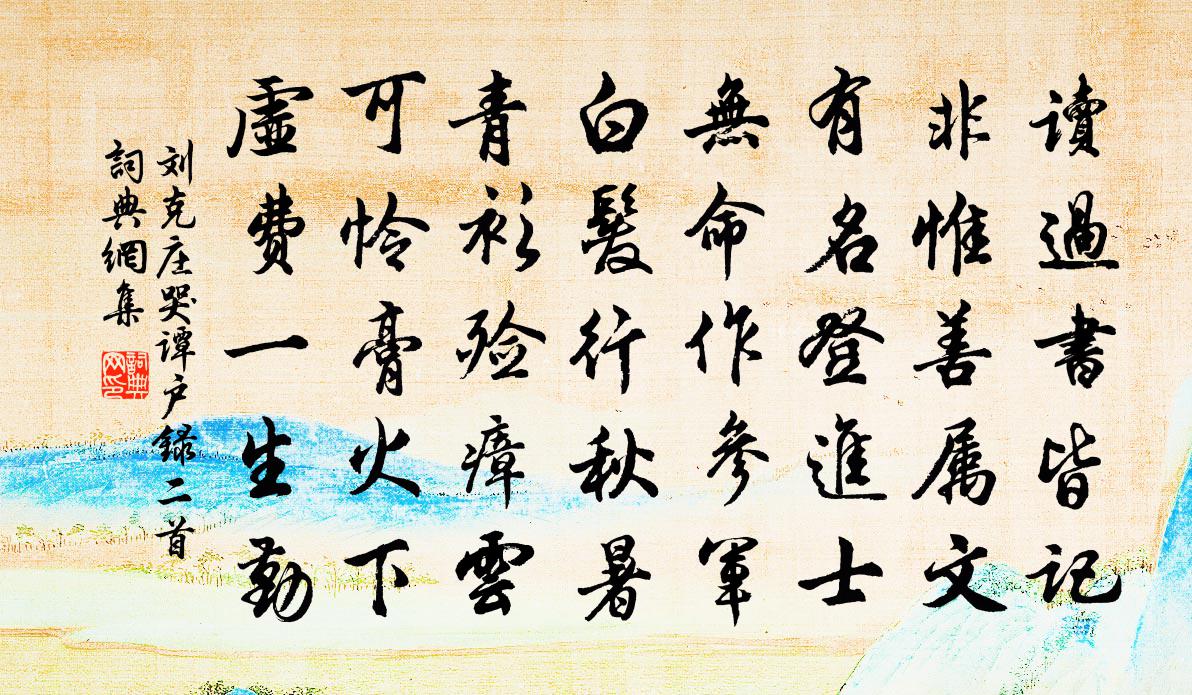 讀過書皆記
非惟善属文
有名登進士
無命作參軍
白髮行秋暑
青衫殮瘴雲
可怜膏火下
虛費一生勤
刘克庄哭谭户録二首
詞典網集
詞典网印